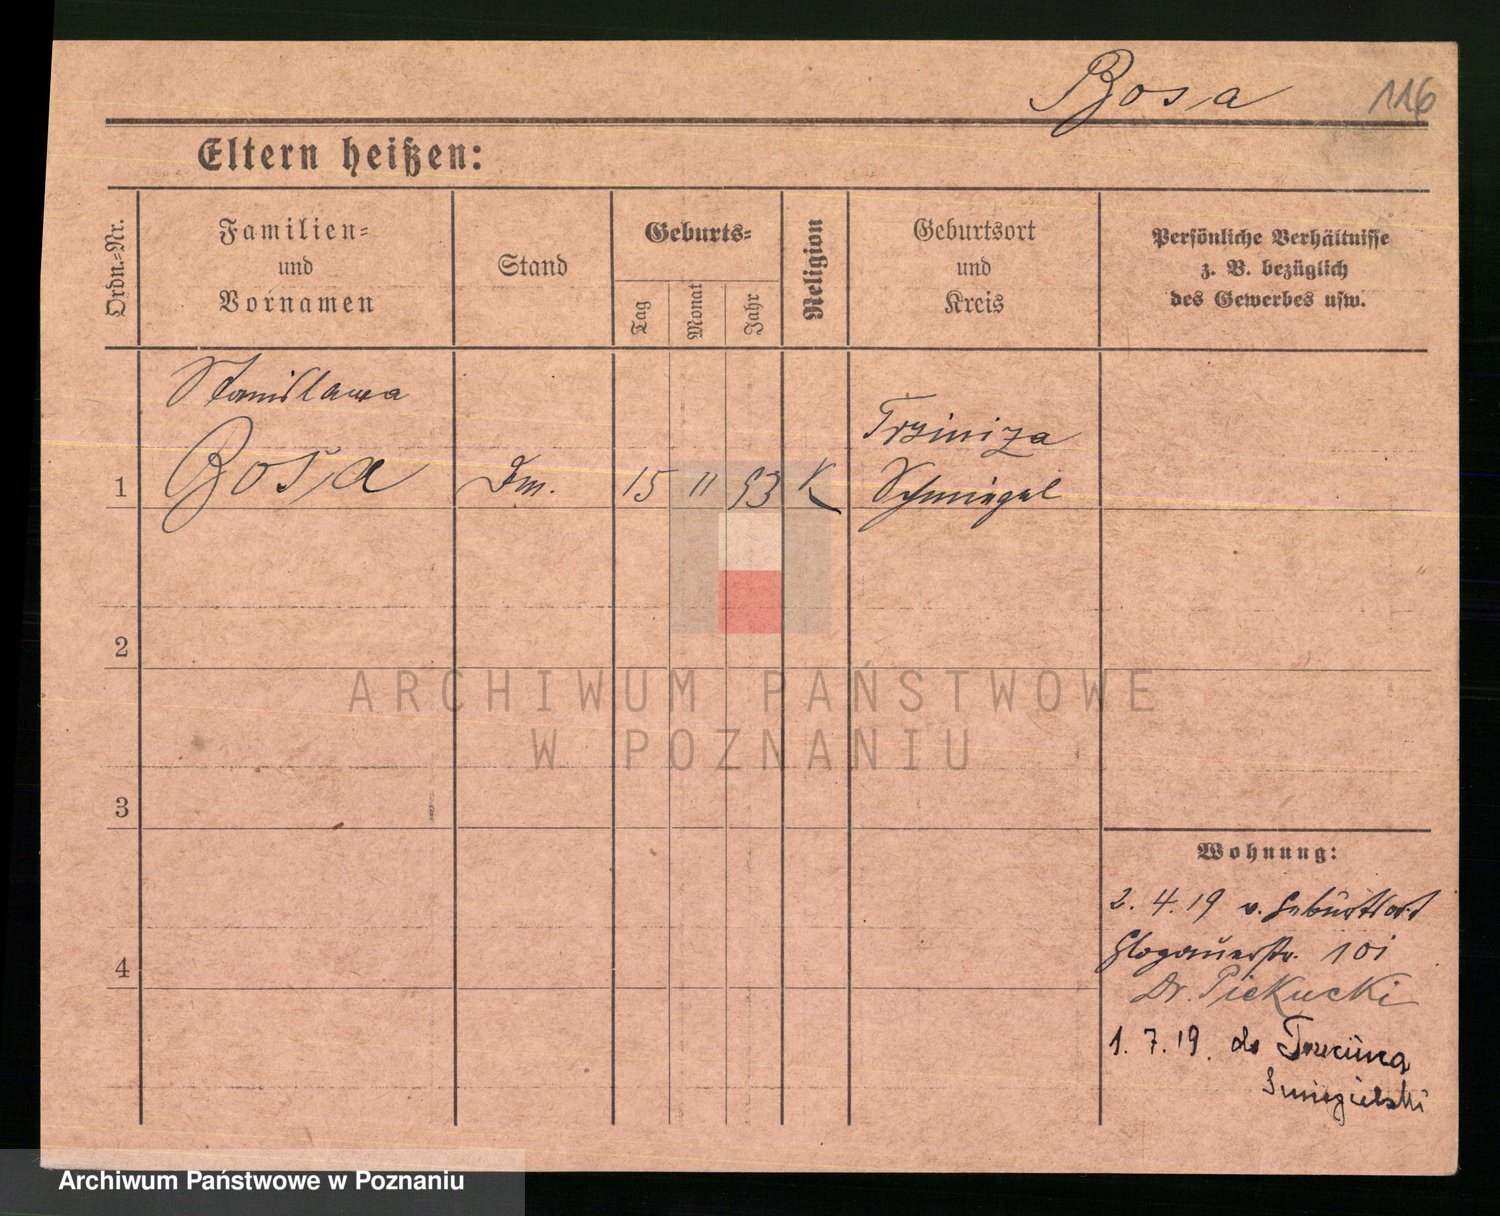 Bosa 116
Eltern heißen:
Ordn.-Nr.
Familien-
und
Vornamen
Stand
Geburts-
Tag
Monat
Jahr
Religion
Geburtsort
und
Kreis
Persönliche Verhältnisse
z. B. bezüglich
des Gewerbes usw.
Stanislawa
Bosa
1
Dm.
15 11 93 K
Trziniza
Schmiegel
2
3
4
Wohnung:
2. 4. 19 v. Geburtsort
Glogauerstr. 101
Dr. Piekucki
1. 7. 19. do
ARCHIWUM PAŃSTWOWE
W POZNANIU
Archiwum Państwowe w Poznaniu